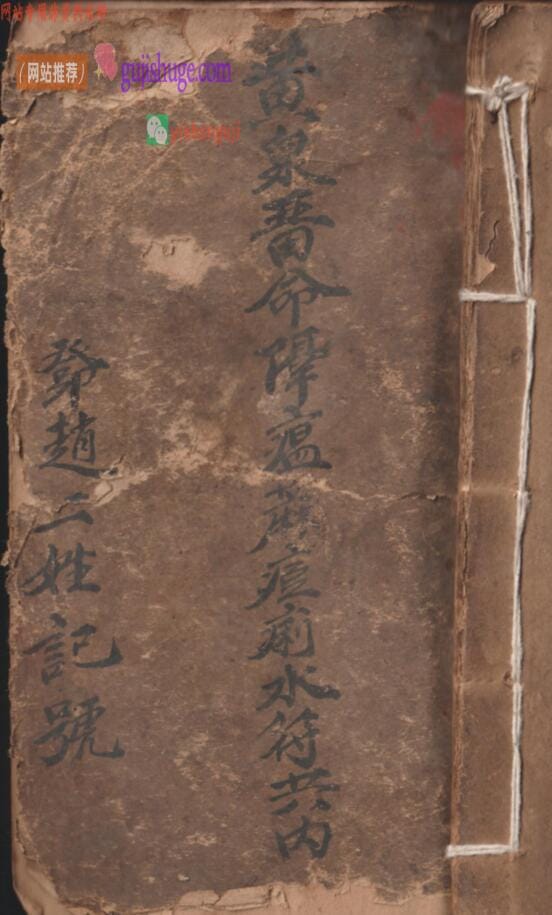 （网站推荐）
gujishuge.com
黄泉命瘟蔴痘痢水符共内
鄧趙二姓記號